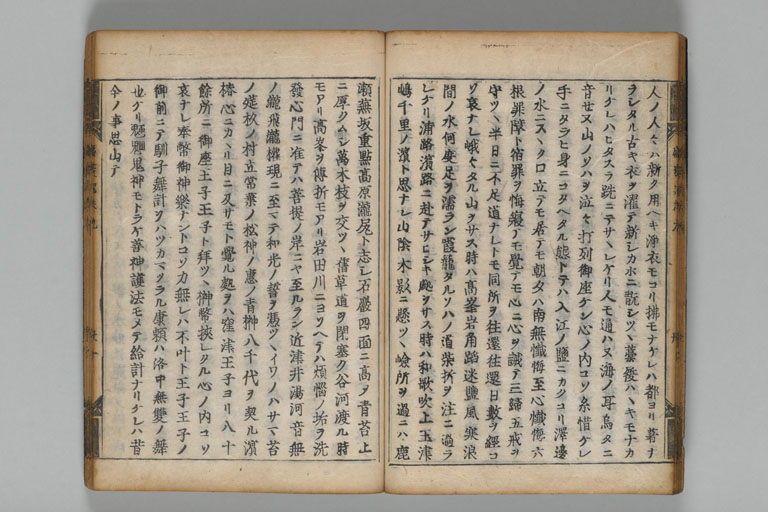 人ノ人々ハ新ク用ヘキ淨衣モコリ拂モナケレハ都ヨリ著ナ
ラシタル古キ衣ヲ濯テ新シカホニ翫シツヽ藁履ハヽキモナカ
リケレハヒタスラ跣ニテサヽレケリ人モ通ハヌ海ノ耳烏タニ
音せヌ山ノソハヲ泣々打列御座ケン心ノ内コソ糸惜ケレ
手ニタラヒ身ニコタヘタル態トテハ入江ノ鹽ニカクコリ澤邊
ノ水ニスヽク口立テモ居テモ朝タハ南無懺悔至心懺悔六
根罪障ト宿罪ヲ悔寢テモ覺テモ心ニ心ヲ誡テ三歸五戒ヲ
守ツヽ半日ニ不足道ナレトモ同所ヲ往還往還日數ヲ經コ
ソ哀ナレ峨々タル山ヲサス時ハ高峯岩角蹈迷鹽風寒浪
間ノ水何度足ヲ濡ラン霞籠タルソハノ道柴折ヲ注ニ過ラ
レケリ浦路濱路ニ赴テサヒシキ處ヲサス時ハ和歌吹上玉津
嶋千里ノ濱ト思ナレ山陰木影ニ懸ツヽ嶮所ヲ過ニハ鹿
瀬蕪坂重點高原瀧尻ト志シ石巖四面ニ高ヲ青苔上
ニ厚クムシ萬木枝ヲ交ツヽ舊草道ヲ閉塞ク谷河渡ル時
モアリ高峯ヲ傳折モアリ岩田川ニヨソヘテハ煩惱ノ垢ヲ洗
發心門ニ准テハ菩提ノ岸ニヤ至ルラン近津井湯河音無
ノ瀧飛瀧權現ニ至マテ和光ノ誓ヲ憑ツヽイワノハサマ苔
ノ莚杉ノ村立常葉ノ松神ノ惠ノ青榊八千代ヲ契ル濱
椿心ニカヽリ目ニ及サモト覺ル處ヲハ窪津王子ヨリ八十
餘所ニ御座王子王子ト拜ツヽ榊幣挾レタル心ノ内コソ
哀ナレ奉幣御神樂ナントコソカ無レハ不叶ト王子王子ノ
御前ニテ馴子舞計ヲハツカマツラル康頼ハ洛中無雙ノ舞
也ケリ魍魎鬼神モトラケ善神護法モメテ給計ナリケレハ昔
今ノ事思出テ